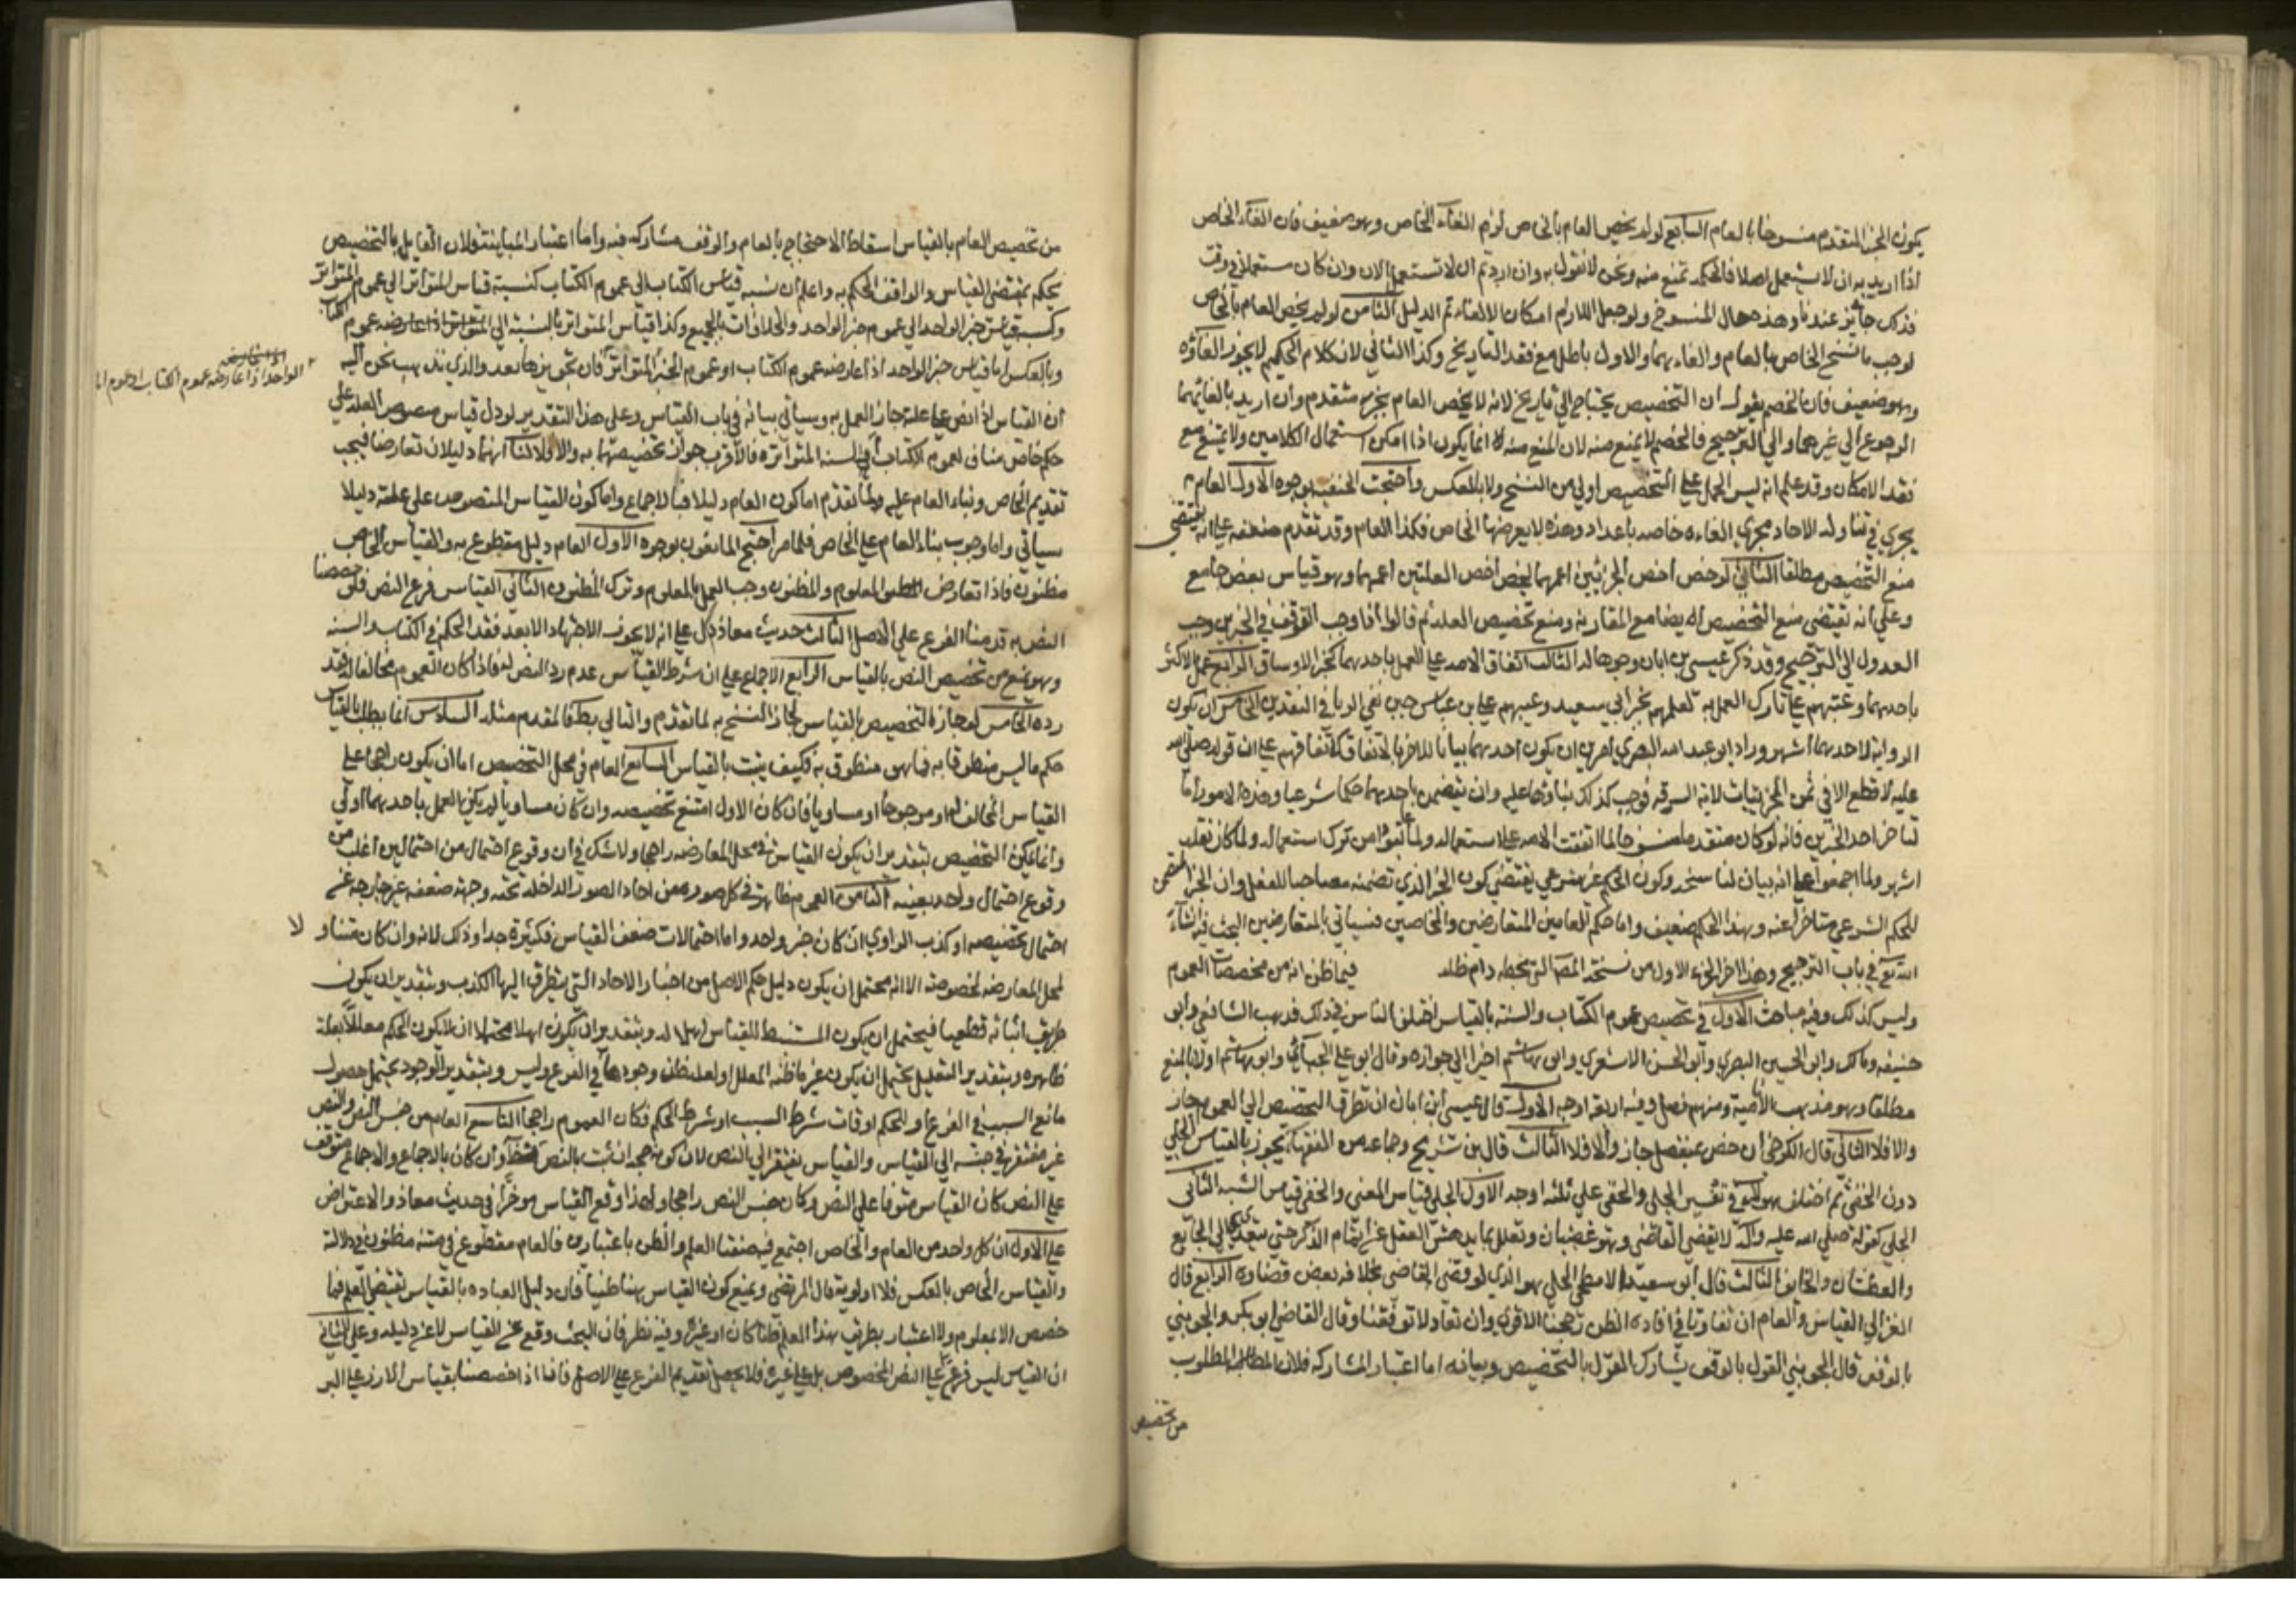 يكون الخبر المتقدم منسوخا بالعام السابع لو لم يخص العام بالخاص لزم الغاء الخاص وهو ضعيف فان الغاء الخاص
اذا اريد به ان لا يستعمل اصلا فالحكم تمنع منه ونحن لا نقول به وان اردتم ان لا تستعمل الان وان كان مستعملا في وقت
فذلك جائز عندنا وهذه حال المنسوخ ولو جعل اللازم امكان الالغاء تم الدليل الثامن لو لم يخص العام بالخاص
لوجب ما نسخ الخاص بالعام والغاءهما والاول باطل مع فقد التاريخ وكذا الثاني لان كلام الحكيم لا يجوز الغاؤه
وهو ضعيف فان الخصم يقول ان التخصيص يحتاج الى تاريخ لانه لا يخص العام بخبر متقدم وان اريد بالغائهما
الرجوع الى غيرهما والى الترجيح فالخصم لا يمنع منه لان المنع منه انما يكون اذا امكن استعمال الكلامين ولا يمتنع مع
فقد الامكان وقد علم انه ليس الحمل على التخصيص اولى من النسخ ولا بالعكس واحتجت الحنفية بوجوه الاول العام
يجري في تناوله الاحاد مجرى الفاظ خاصه باعداد وهذه لا يعرضها الخاص فكذا العام وقد تقدم ضعفه على انه يقتضي
منع التخصيص مطلقا الثاني لو خص اخص الخبرين اعمهما لخص اخص العلتين اعمهما وهو قياس بغير جامع
وعلى انه يقتضي منع التخصيص ايضا مع المقارنه ومنع تخصيص العلة ثم قالوا اذا وجب التوقف في الخبرين وجب
العدول الى الترجيح وقد ذكر عيسى بن ابان وجوها له الثالث اتفاق الامه على العمل باحدهما كخبر الاوساق الرابع عمل الاكثر
باحدهما وعتبهم على تارك العمل به كعملهم بخبر ابي سعيد وعيبهم على ابن عباس حين نفى الربا في النقدين الخامس ان يكون
الرواية لاحدهما اشهر وزاد ابو عبد الله البصري امرين ان يكون احدهما بيانا للاخر بالاتفاق كاتفاقهم على ان قوله صلى الله
عليه لا قطع الا في ثمن المجن بيان لاية السرقه فوجب كذلك بناؤها عليه وان يتضمن احدهما حكما شرعيا وهذه الامور اما
لتاخر احد الخبرين فانه لو كان متقدما منسوخا لما اتفقت الامه على استعماله ولما عتبوا من ترك استعماله ولما كان نقله
اشهر ولما اجمعوا على انه بيان لناسخه وكون الحكم غير شرعي يقتضي كون الخبر الذي تضمنه مصاحبا للعقل وان الخبر المتضمن
للحكم الشرعي متاخرا عنه وبهذا الحكم ضعيف واما حكم العامين المتعارضين والخاصين فسياتي بالمتعارضين البحث فيه انشاء
الله تع في باب الترجيح وهذا اخر الجزء الاول من نسخة المص التي بخطه دام ظله فيما ظن انه من مخصصات العموم
وليس كذلك وفيه مباحث الاول في تخصيص عموم الكتاب والسنه بالقياس اختلف الناس في ذلك فذهب الشافعي وابو
حنيفه ومالك وابو الحسين البصري وابو الحسن الاشعري وابو هاشم اخيرا الى جوازه وقال ابو علي الجبائي وابو هاشم اولا بالمنع
مطلقا وهو مذهب الامامية ومنهم من فصل وفيه اربعة اوجه الاول قال عيسى ابن ابان ان تطرق التخصيص الى العموم جاز
والا فلا الثاني قال الكرخي ان خص بمنفصل جاز والا فلا الثالث قال ابن شريح وجماعه من الفقهاء يجوز بالقياس الجلي
دون الخفي ثم اختلف هولاء في تفسير الجلي والخفي على ثلثة اوجه الاول الجلي قياس المعنى والخفي قياس الشبه الثاني
الجلي كقوله صلى الله عليه واله لا يقضي القاضي وهو غضبان وتعلل بما يدهش العقل عن اتمام الفكر حتى يتعدى الى الجائع
والعطشان والخائف الثالث قال ابو سعيد الاصطخري الجلي هو الذي لو قضى القاضي بخلافه نقض قضاوه الرابع قال
الغزالي القياس والعام ان تفاوتا في افادة الظن رجحنا الاقوى وان تعادلا توقفنا وقال القاضي ابو بكر والجويني
بالوقف قال الجويني القول بالوقف يشارك القول بالتخصيص ويباينه اما اعتبار المشاركه فلان المطلوب
من تخصيص
من تخصيص العام بالقياس اسقاط الاحتجاج بالعام والوقف مشاركه فيه واما اعتبار المباينة فلان القايل بالتخصيص
يحكم بمقتضى القياس والواقف لا يحكم به واعلم ان نسبه قياس الكتاب الى عموم الكتاب كنسبة قياس المتواتر الى عموم المتواتر
وكنسبة قياس خبر الواحد الى عموم خبر الواحد والخلاف ثابت بالجميع وكذا قياس المتواتر بالنسبة الى عموم الكتاب
وبالعكس اما قياس خبر الواحد اذا عارضه عموم الكتاب او عموم الخبر المتواتر فان تجويزه ابعد والذي نذهب نحن اليه
الواحد اذا عارضه عموم الكتاب او عموم
ان القياس اذا نص على علته جاز العمل به وسياتي بيانه في باب القياس وعلى هذا التقدير لو دل قياس منصوص العله على
حكم خاص مناف لعموم الكتاب او السنه المتواتره فالاقرب جواز تخصيصها به والا فلا لنا انهما دليلان تعارضا فيجب
تقديم الخاص وبناء العام عليه ولما تقدم اما كون العام دليلا فبالاجماع واما كون القياس المنصوص على علته دليلا
سياتي واما وجوب بناء العام على الخاص فلما مر احتج المانعون بوجوه الاول العام دليل مقطوع به والقياس الخاص
مظنون فاذا تعارض المعلوم والمظنون وجب العمل بالمعلوم وترك المظنون الثاني القياس فرع النص فلو خصصنا
النص به قدمنا الفرع على الاصل الثالث حديث معاذ دل على انه لا يجوز الاجتهاد الا بعد فقد الحكم في الكتاب والسنه
وهو يمنع من تخصيص النص بالقياس الرابع الاجماع على ان شرط القياس عدم رد النص له فاذا كان العموم مخالفا له فقد
رده الخامس لو جاز التخصيص بالقياس لجاز النسخ به لما تقدم والتالي بط فالمقدم مثله السادس انما يطلب بالقياس
حكم ما ليس منطوقا به فما هو منطوق به فكيف يثبت بالقياس السابع العام في محل التخصيص اما ان يكون راجحا على
القياس المخالف له او مرجوحا او مساويا فان كان الاول امتنع تخصيصه وان كان مساويا لم يكن العمل باحدهما اولى
وانما يمكن التخصيص بتقدير ان يكون القياس في محل المعارضه راجحا ولا شك في ان وقوع احتمال من احتمالين اغلب من
وقوع احتمال واحد بعينه الثامن العموم ظاهر في كل صوره من احاد الصور الداخله تحته وجهة ضعفه غير خارجه عن
احتمال تخصيصه او كذب الراوي ان كان خبر واحد واما احتمالات ضعف القياس فكثيرة جدا وذلك لانه وان كان متناولا
لمحل المعارضه لخصوصه الا انه محتمل ان يكون دليل حكم الاصل من اخبار الاحاد التي يتطرق اليها الكذب وبتقدير ان يكون
طريق اثباته قطعيا فيحتمل ان يكون المستنبط للقياس ليس اهلا له وبتقدير ان يكون اهلا محتمل ان لا يكون الحكم معللا بعلة
ظاهره وبتقدير التعليل يحتمل ان يكون غير ما ظنه المعلل او لعله ظن وجودها في الفرع وليس وبتقدير الوجود يحتمل حصول
مانع السبب في الفرع او الحكم او فات شرط السبب او شرط الحكم فكان العموم راجحا التاسع العام من جنس النص والنص
غير مفتقر في جنسه الى القياس والقياس يفتقر الى النص لان كونه حجه ان ثبت بالنص وان كان بالاجماع والاجماع متوقف
على النص كان القياس متوقفا على النص وكان جنس النص راجحا ولهذا وقع القياس موخرا في حديث معاذ والاعتراض
على الاول ان كل واحد من العام والخاص اجتمع فيه صفتا العلم والظن باعتبارين فالعام مقطوع في متنه مظنون في دلالته
والقياس الخاص بالعكس فلا اولوية قال المرتضى ونمنع كون القياس هنا ظنيا فان دليل العباده بالقياس يقتضي العلم فما
خصص الا بمعلوم ولا اعتبار بطريق هذا العلم ظنا كان او غيره وفيه نظر فان البحث وقع عن القياس لا عن دليله وعلى الثاني
ان القياس ليس فرع على النص المخصوص بل على غيره فلا يحصل تقديم الفرع على الاصل فانا اذا خصصنا بقياس الارز على البر